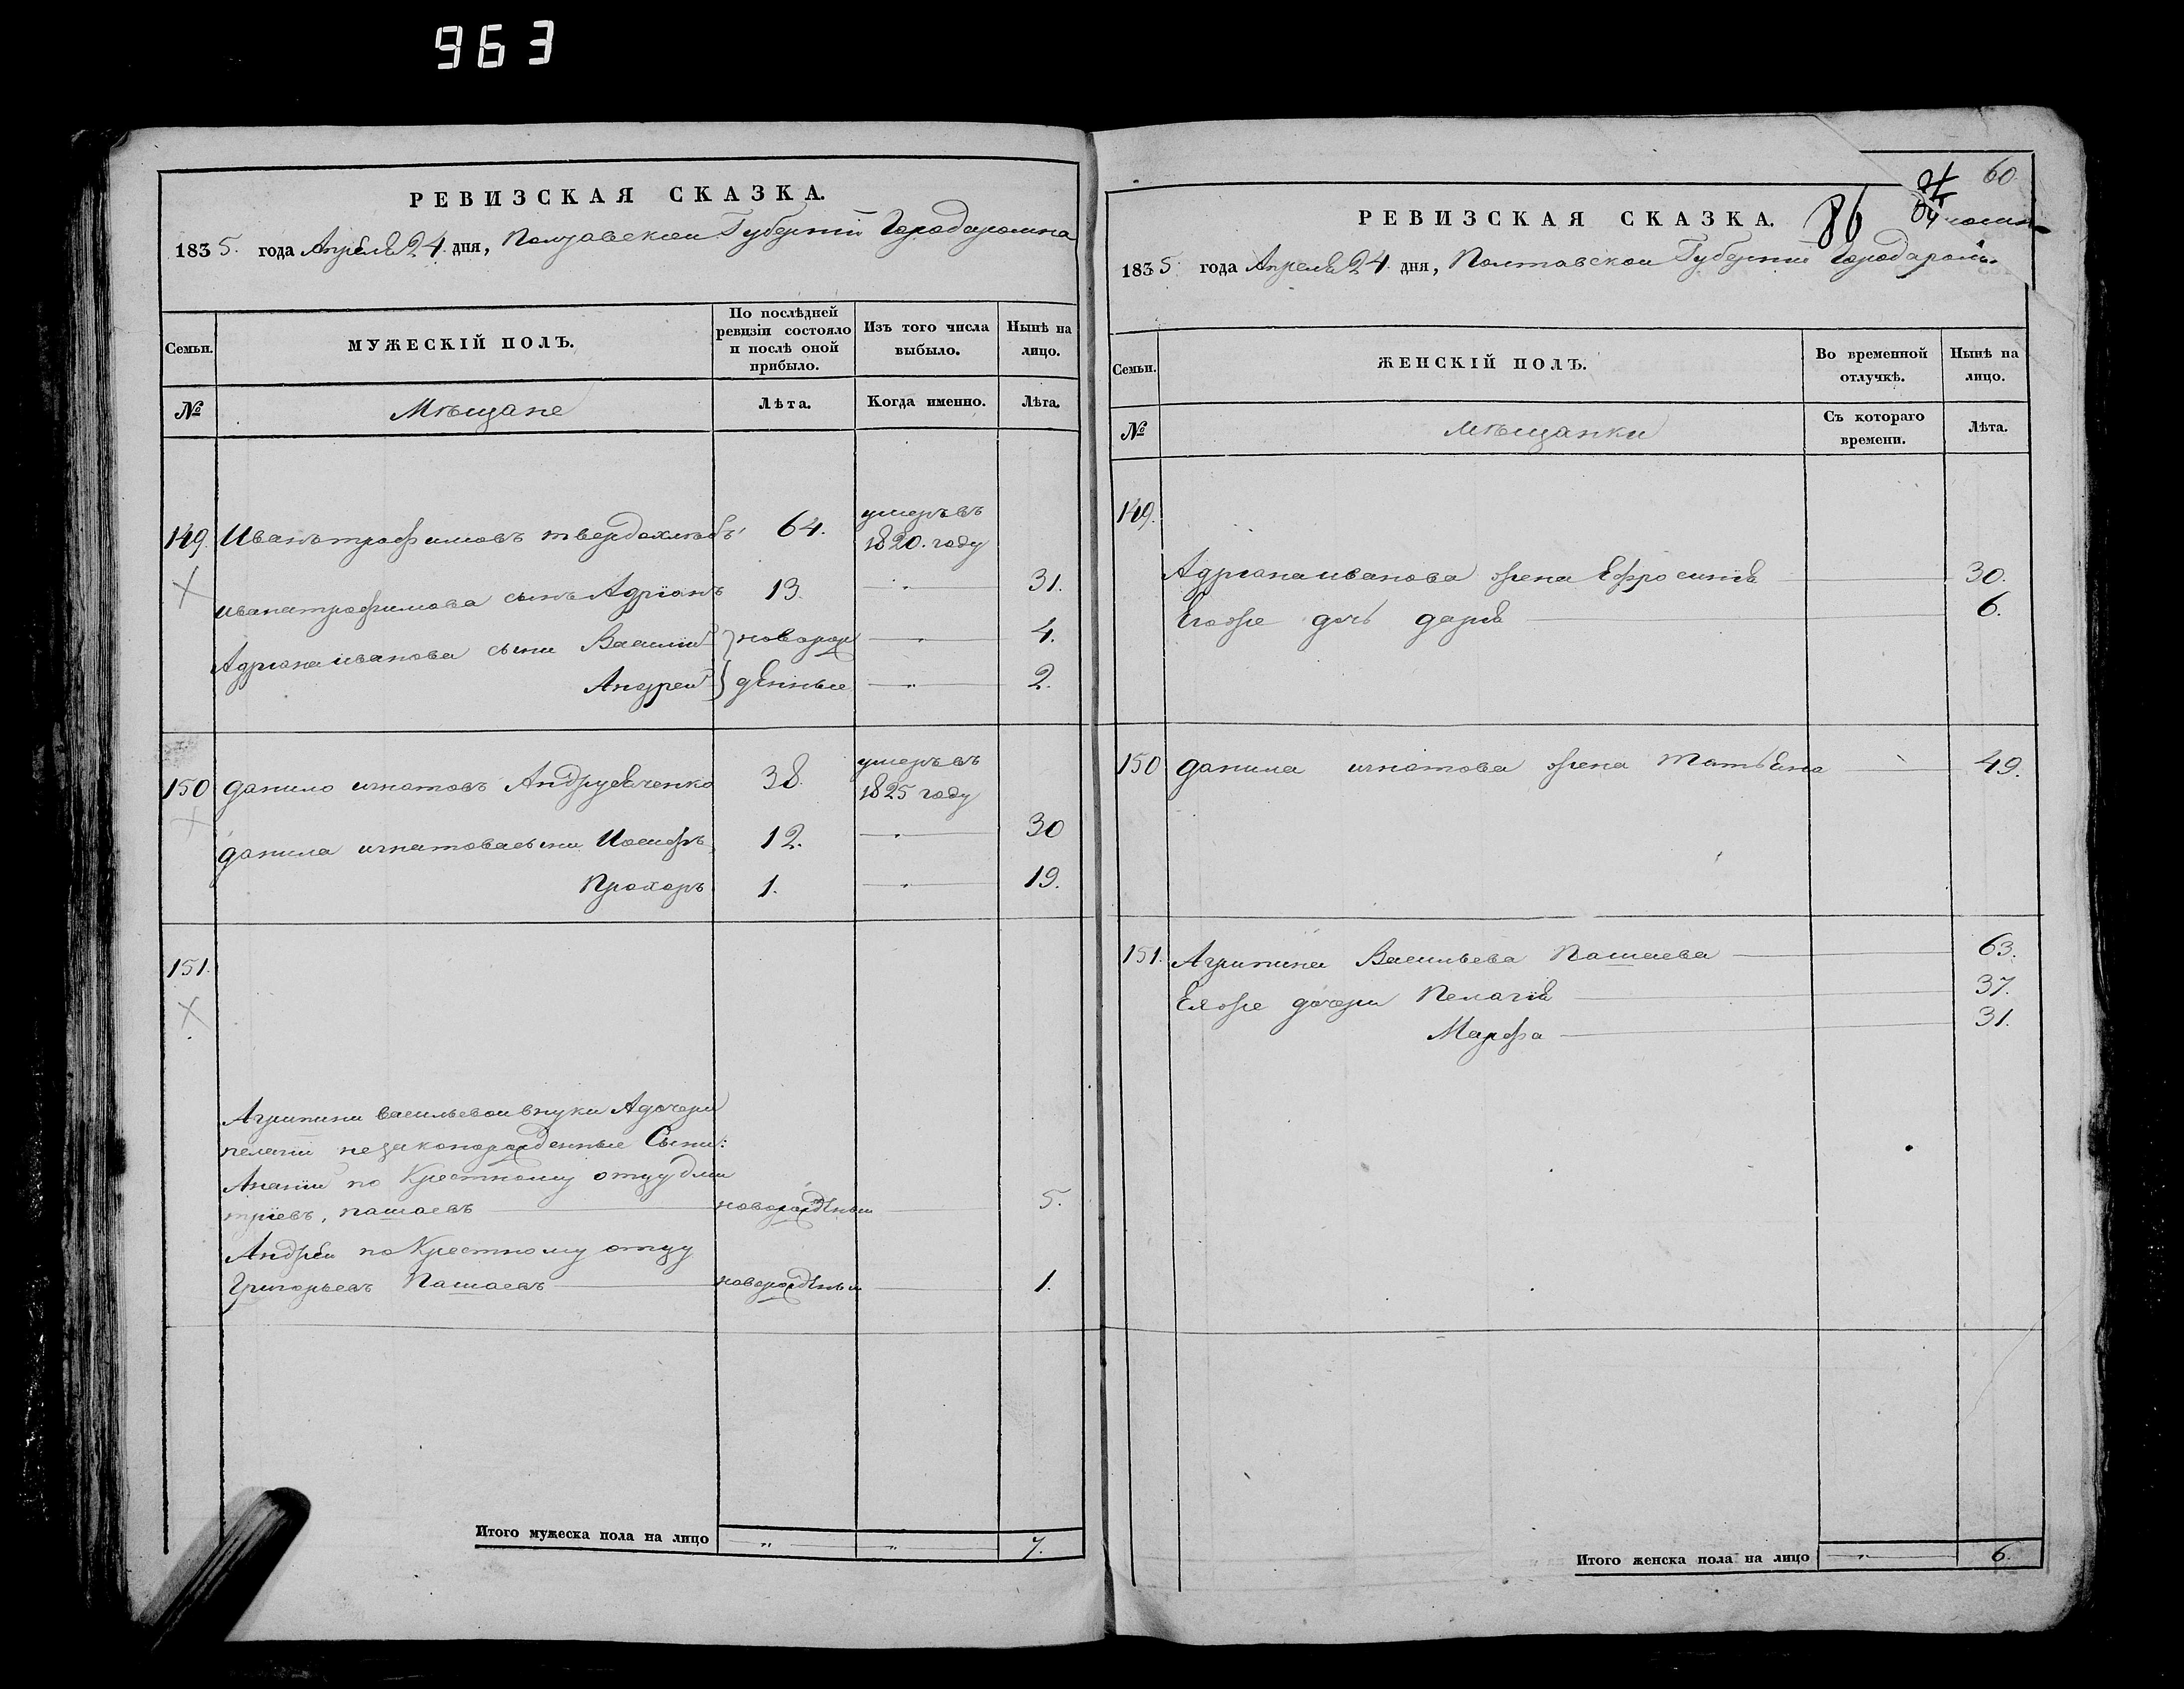 963
РЕВИЗСКАЯ СКАЗКА.
1835. года Апреля 24. дня, Полтавской Губернии Города ромна
Семьи.
МУЖЕСКІЙ ПОЛЪ.
По послѣдней ревизіи состояло и послѣ оной прибыло.
Изъ того числа выбыло.
Нынѣ на лицо.
№
Мѣщане
Лѣта.
Когда именно.
Лѣта.
149. Иванъ трофимовъ твердохлѣбъ 64. умеръ въ 1820. году
ивана трофимова сынъ Адріанъ 13. " 31.
Адріана иванова сыни Василий } новорож " 4.
Андрей } денные " 2.
150 данило игнатовъ Андрусѣченко 38. умеръ въ 1825 году
данила игнатова сыни Иосифъ 12. " 30
Прохоръ 1. " 19.
151.
Агрипини васильевой внуки А дочери
пелагіи незаконорожденные Сыни:
Ананій по Крестному отцу дми
тріевъ, пашаевъ новорожденый 5.
Андрей по Крестному отцу
Григорьевъ Пашаевъ новорожденый 1.
Итого мужеска пола на лицо " " 7.
60
86
РЕВИЗСКАЯ СКАЗКА.
1835 года Апреля 24. дня, Полтавской Губерніи Города ромна
Семьи.
ЖЕНСКІЙ ПОЛЪ.
Во временной отлучкѣ.
Нынѣ на лицо.
№
мѣщанки
Съ котораго времени.
Лѣта.
149.
Адріана иванова жена Ефросинія 30.
Егоже дочь дарія 6.
150 данила игнатова жена татьяна 49.
151. Агрипина Васильева Пашаева 63.
Еяже дочери Пелагія 37.
Марфа 31.
Итого женска пола на лицо " 6.